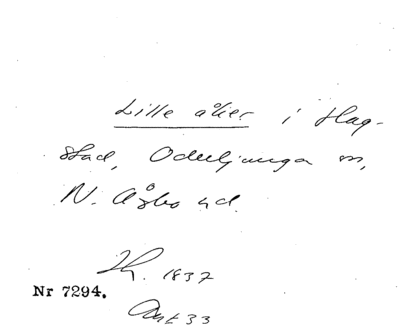 Lille åker i Hag-
stad, Oderljunga sn,
N. Åsbo hd.
Lh. 1837
Nr 7294.
Akt 33